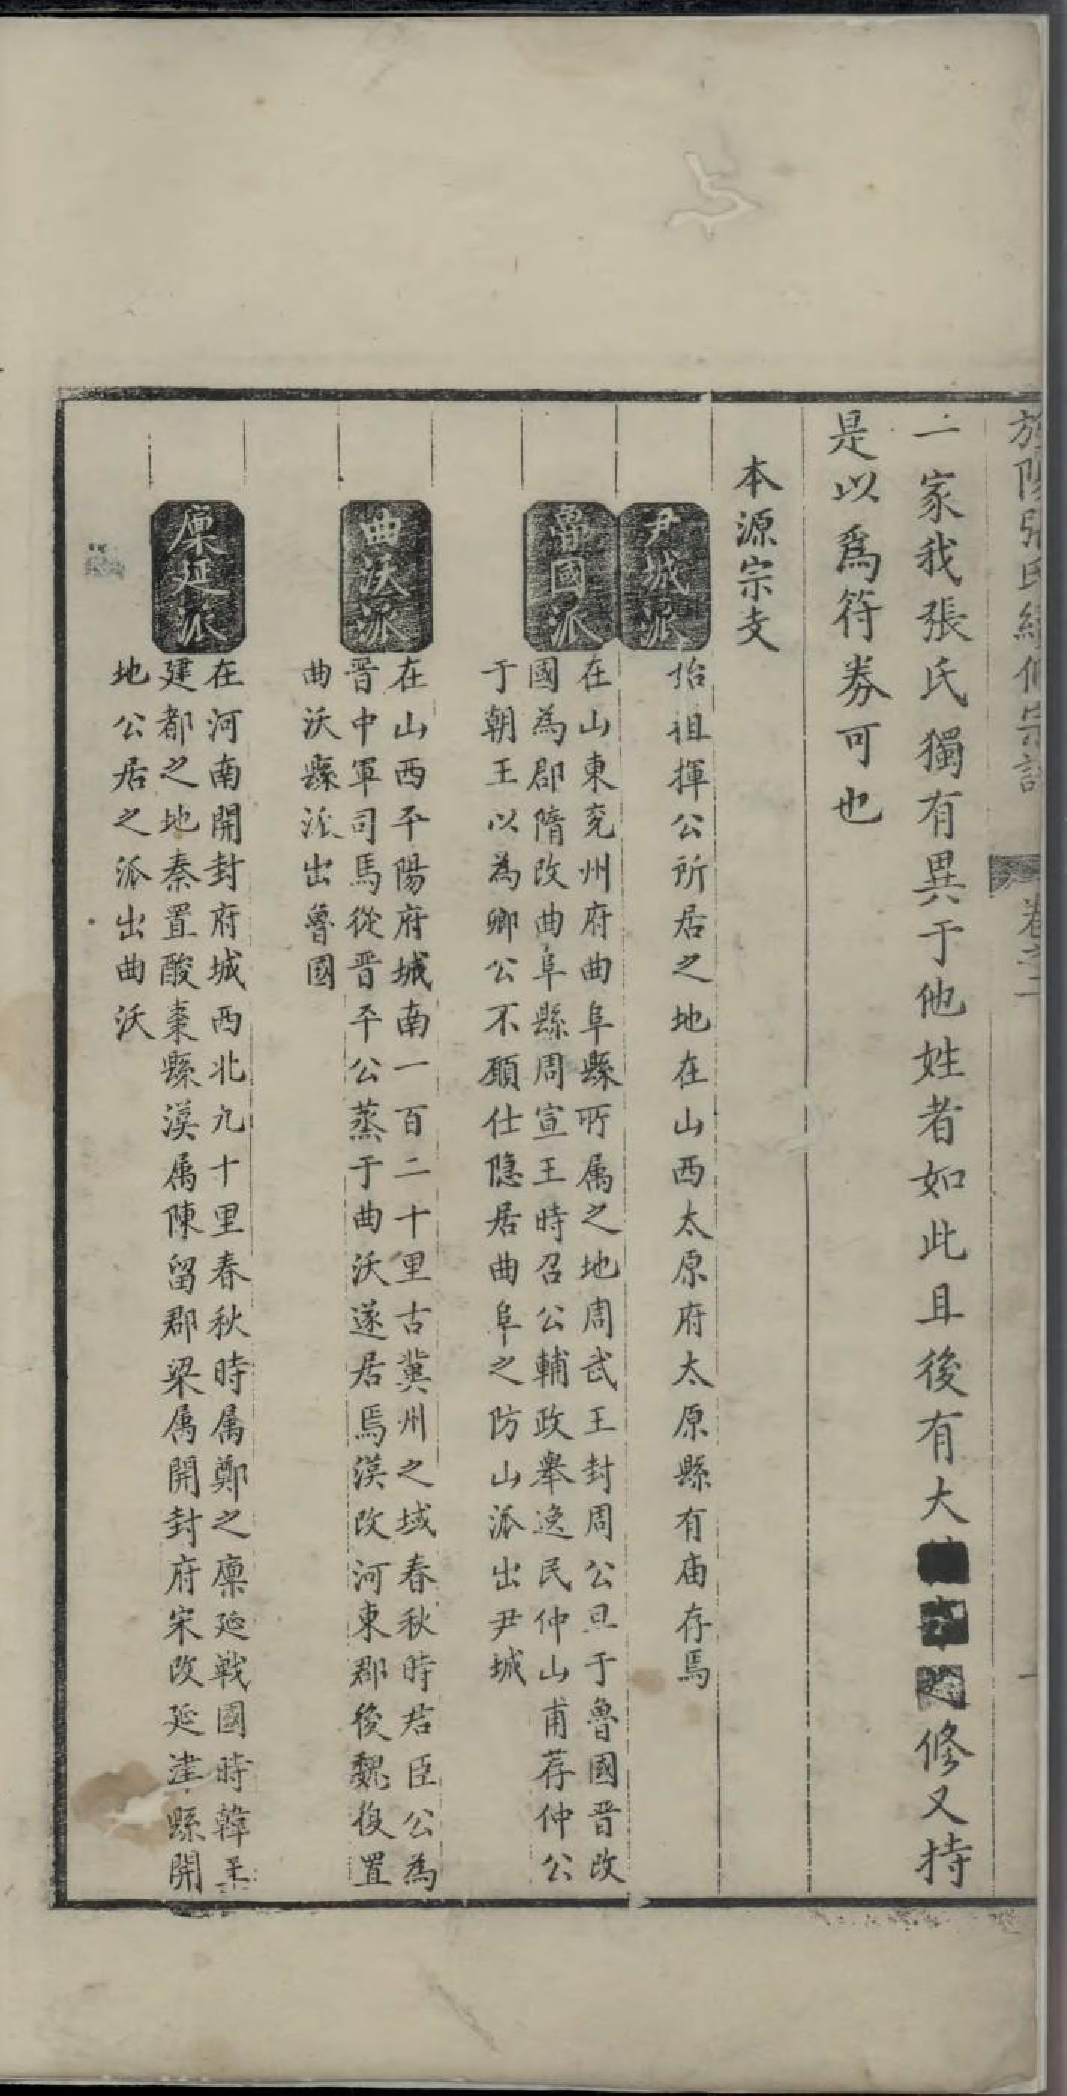 張氏續修宗譜 卷之二
一家我張氏獨有異于他姓者如此且後有大修又持
是以爲符券可也
本源宗支
尹城派
始祖揮公所居之地在山西太原府太原縣有庙存焉
魯國派
在山東兖州府曲阜縣所属之地周武王封周公旦于魯國晋改
國為郡隋改曲阜縣周宣王時召公輔政舉逸民仲山甫荐仲公
于朝王以為卿公不願仕隐居曲阜之防山派出尹城
曲沃派
在山西平陽府城南一百二十里古冀州之域春秋時君臣公為
晋中軍司馬從晋平公蒸于曲沃遂居焉漢改河東郡後魏復置
曲沃縣派出魯國
廩延派
在河南開封府城西北九十里春秋時属鄭之廪延戰國時韓
建都之地秦置酸棗縣漢属陳留郡梁属開封府宋改延津縣開
地公居之派出曲沃